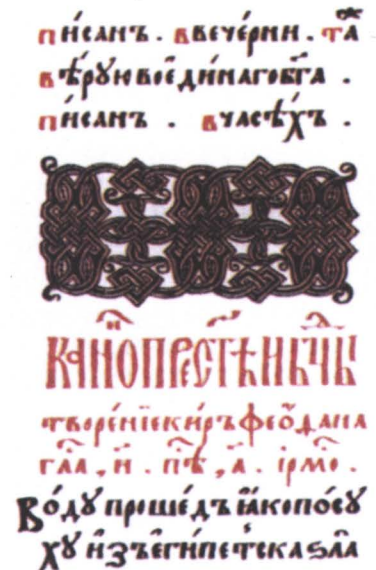 пи́санъ. ввече́рни. та́
вѣ́рую воеди́наго бг҃а.
пи́санъ. вчасѣ́хъ.
канѡ прес҃тѣи бц҃ы
творе́нїе ки́ръ фео́дана
гла҃, и҃. пѣ҃, а҃. ірмо́.
Во́ду проше́дъ ꙗ҆́ко посу́
ху и҆зъ е҆ги́петска ѕла